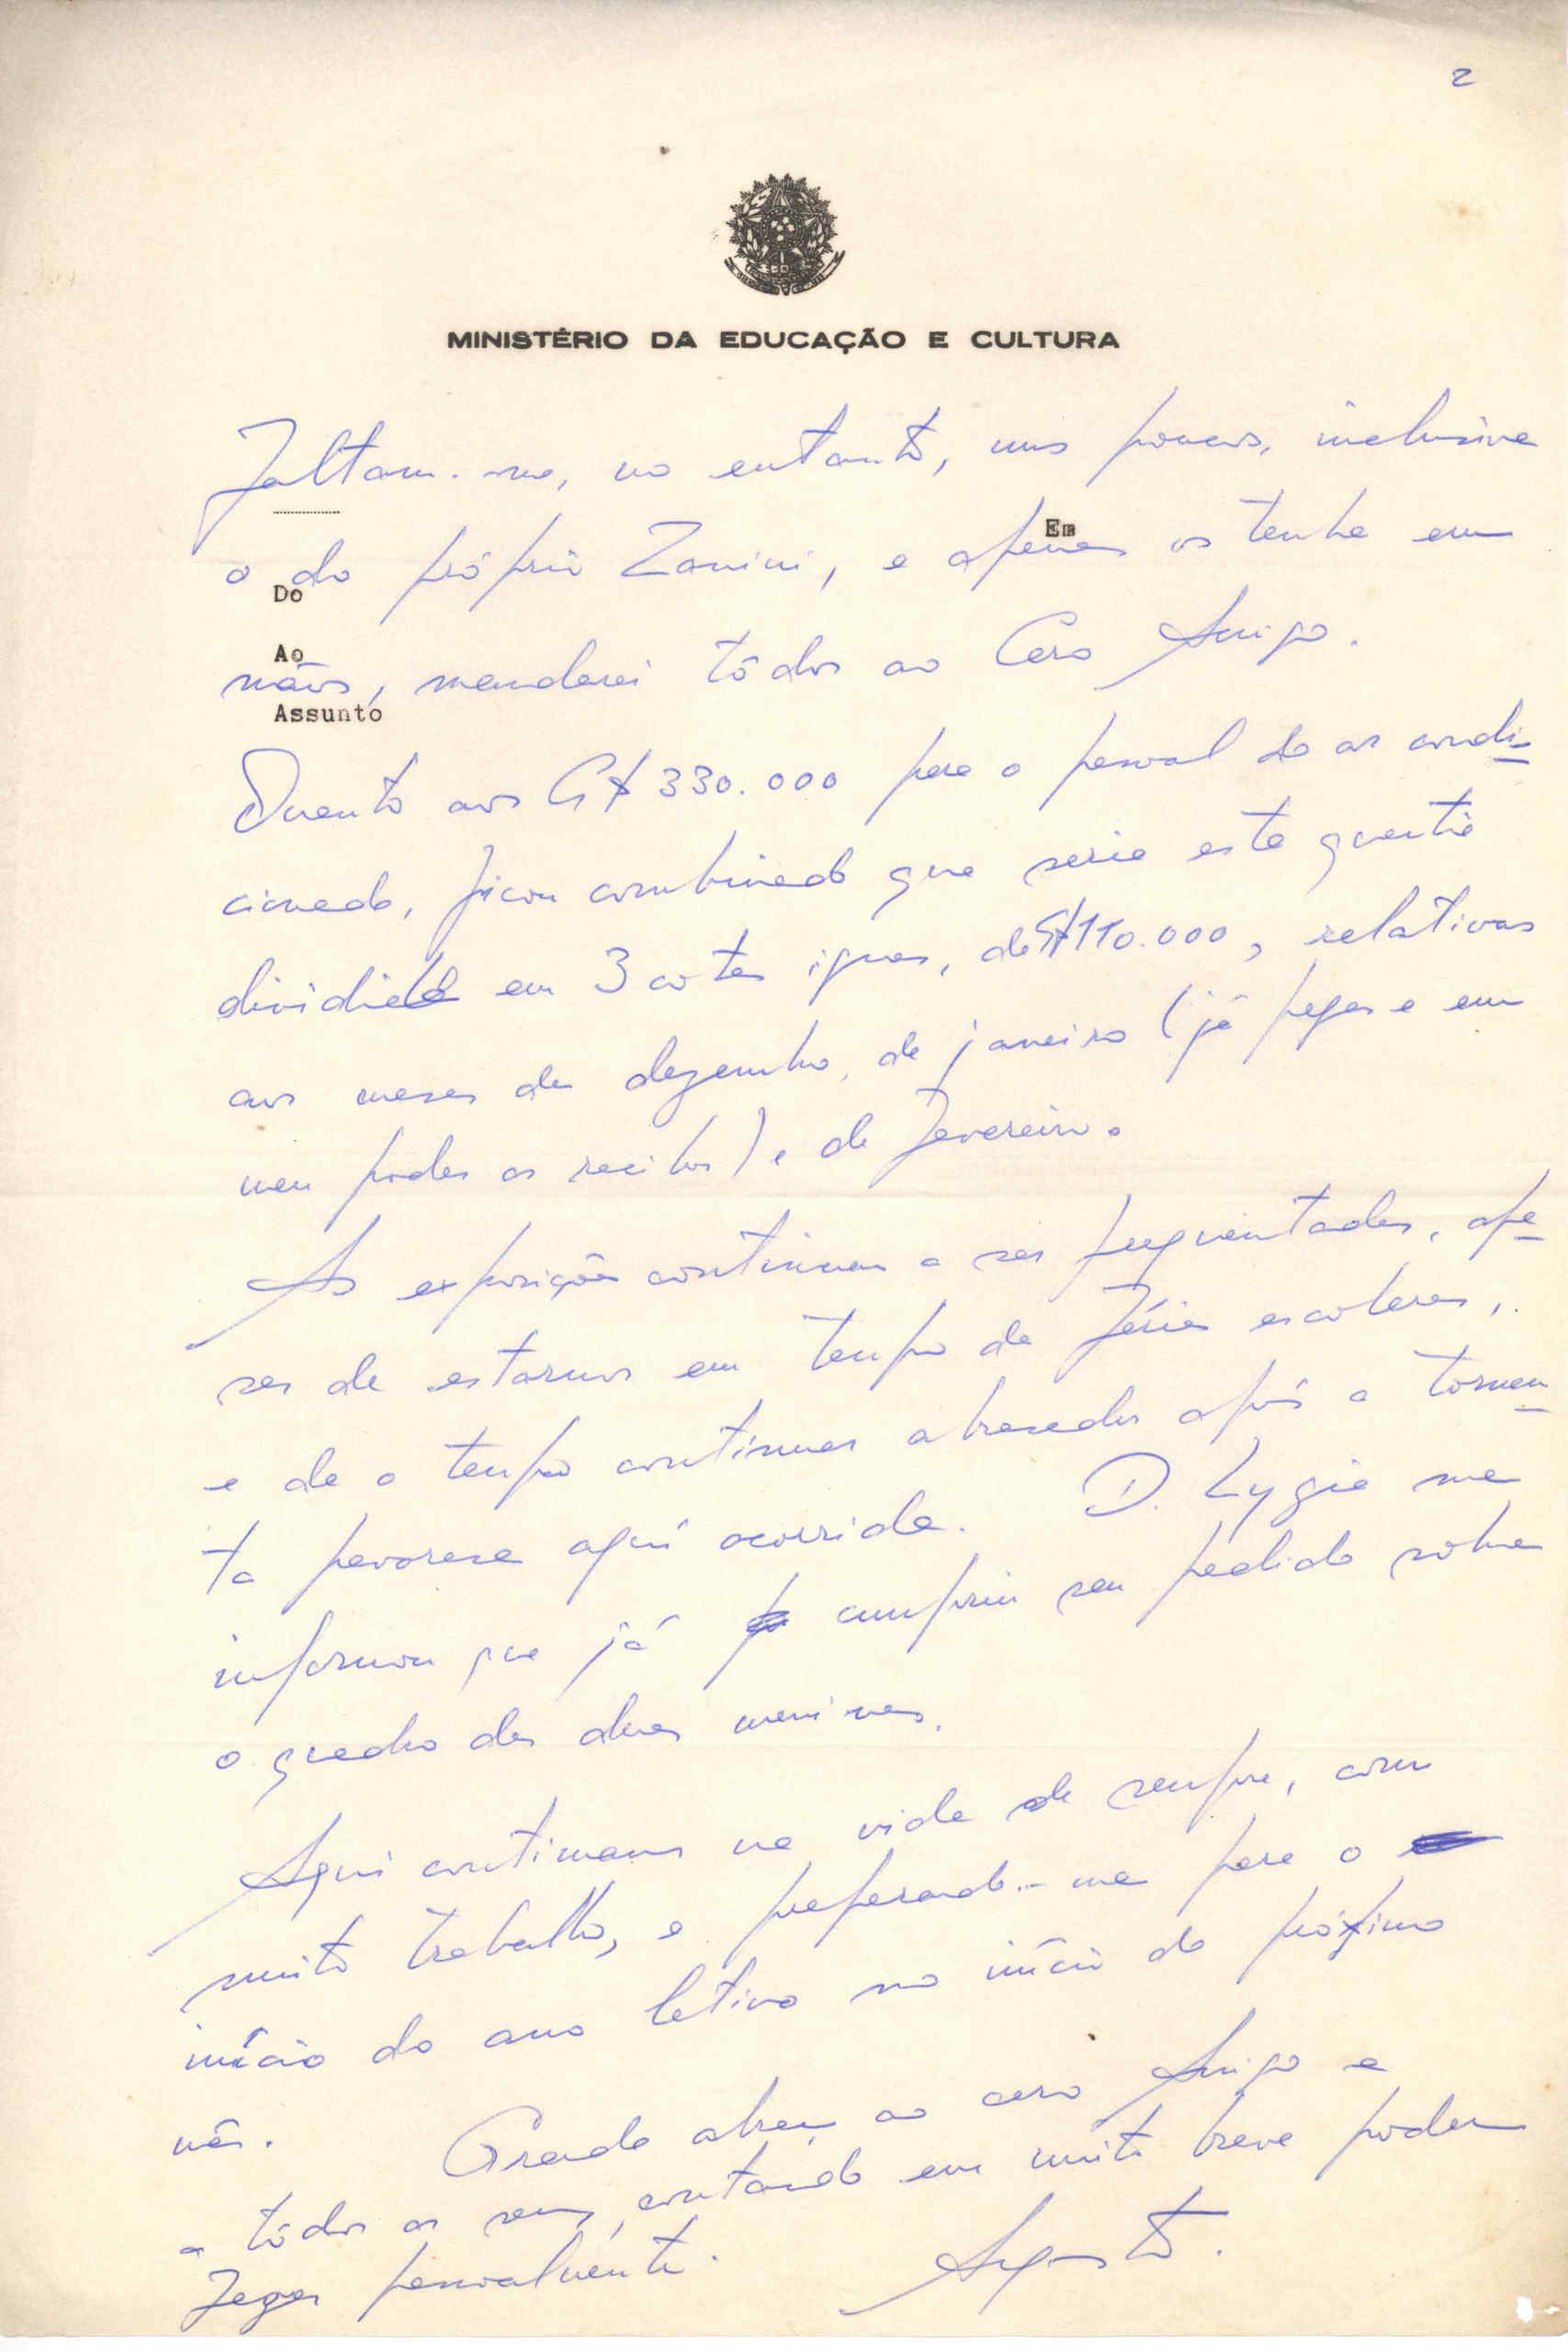 2
MINISTÉRIO DA EDUCAÇÃO E CULTURA
Faltam-me, no entanto, uns poucos, inclusive
Em
o do próprio Zanini, e apenas os tenha em
Do
Ao
mãos, mandarei todos ao Caro Amigo.
Assunto
Quanto aos Cr$ 330.000 para o pessoal do ar condi-
cionado, ficou combinado que seria esta quantia
dividida em 3 cotas iguais, de Cr$ 110.000, relativas
aos meses de dezembro, de janeiro (já pagas e em
meu poder os recibos) e de fevereiro.
As exposições continuam a ser frequentadas, ape-
sar de estarmos em tempo de férias escolares,
e de o tempo continuar abrasador após a tormen-
ta pavorosa aqui ocorrida. D. Lygia me
informou que já cumpriu seu pedido sobre
o quadro das duas meninas.
Aqui continuamos na vida de sempre, com
muito trabalho, e preparando-me para o
início do ano letivo no início do próximo
mês. Grande abraço ao caro Amigo e
a todos os seus, contando em muito breve poder
fazer pessoalmente. Augusto.